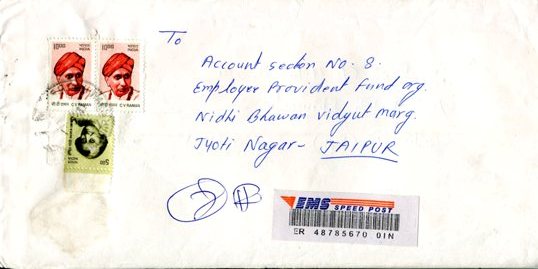 To
Account section No. 8.
Employee Provident Fund org.
Nidhi Bhawan vidyut marg.
Jyoti Nagar- JAIPUR
10.00 भारत INDIA
सी वी रामन C V RAMAN
10.00 भारत INDIA
सी वी रामन C V RAMAN
5.00 भारत INDIA
EMS SPEED POST
ER 48785670 0IN